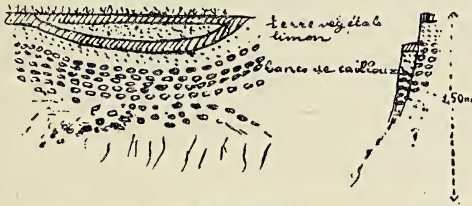 terre végétale
limon
bancs de cailloux
2,50m